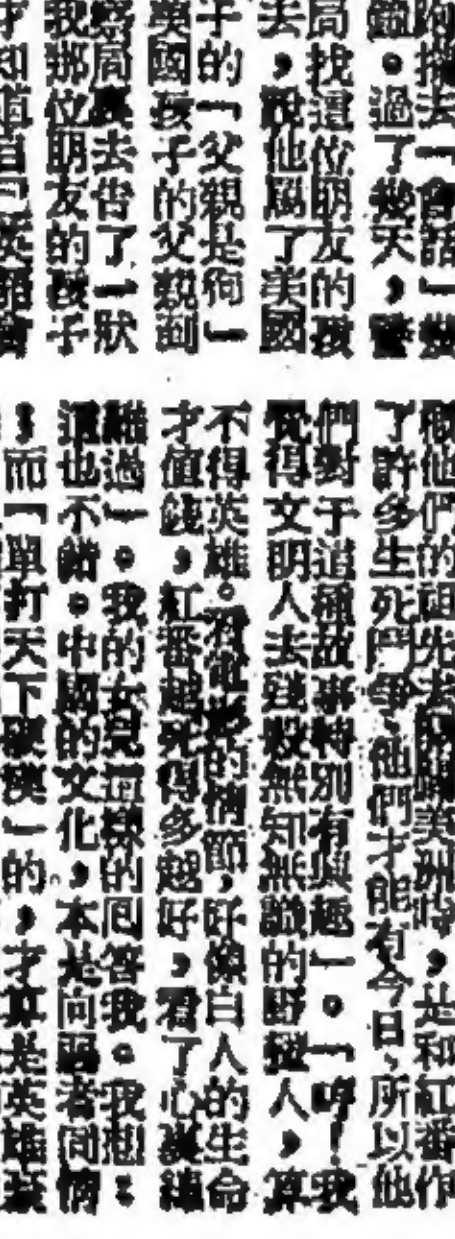 阿摸去「會話」幾
鐘。過了幾天,警
局找這位朋友的孩
去,說他罵了美國
子的「父親是狗」
英國孩子的父親到
察局裏去告了一狀
我那位朋友的孩子
才知道自
他們的祖先去開闢美洲時,是和紅番作
了許多生死鬥爭,他們才能有今日,所以他
們對于這種故事特別有興趣」。「哼!我
覺得文明人去殘殺無知無識的野蠻人,算
不得英雄。看電影的情節,好像白人的生命
才值錢,紅番越死得多越好,看了心裏總
難過」。我的女兒這樣的回答我。我想
這也不錯。中國的文化,本是向弱者同情;
;而「單打天下硬漢」的,才算是英雄